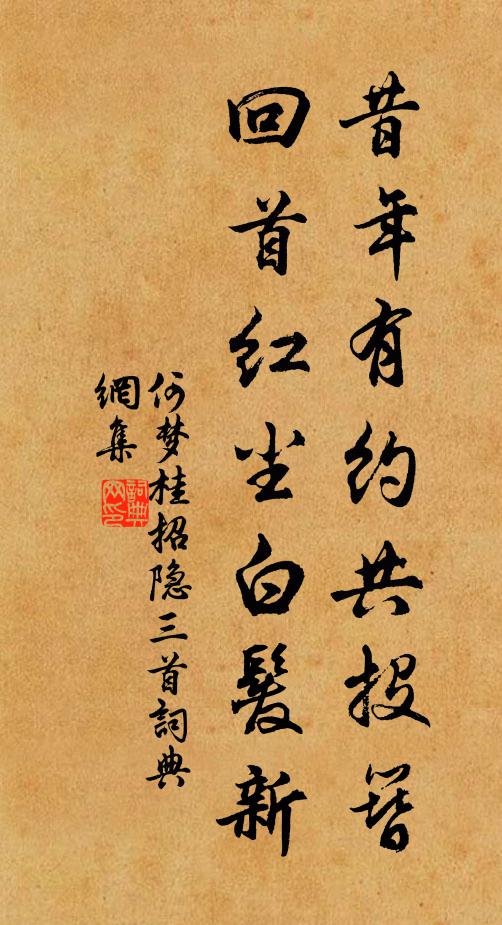 昔年有约共投簪
回首红尘白髮新
何梦桂招隐三首詞典
網集
詞典
网印